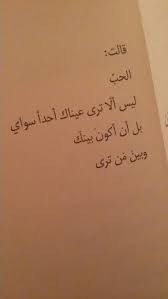 قالت:
الحبّ
ليس ألا ترى عيناك أحداً سواي
بل أن أكونَ بينَك
وبينَ مَن ترى